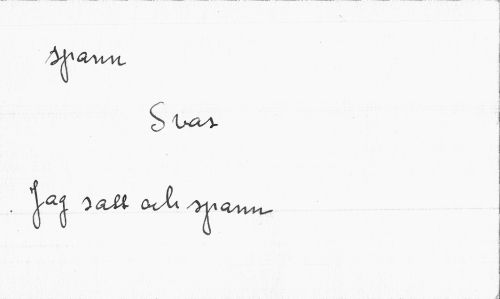 spann
Svar
Jag satt och spann